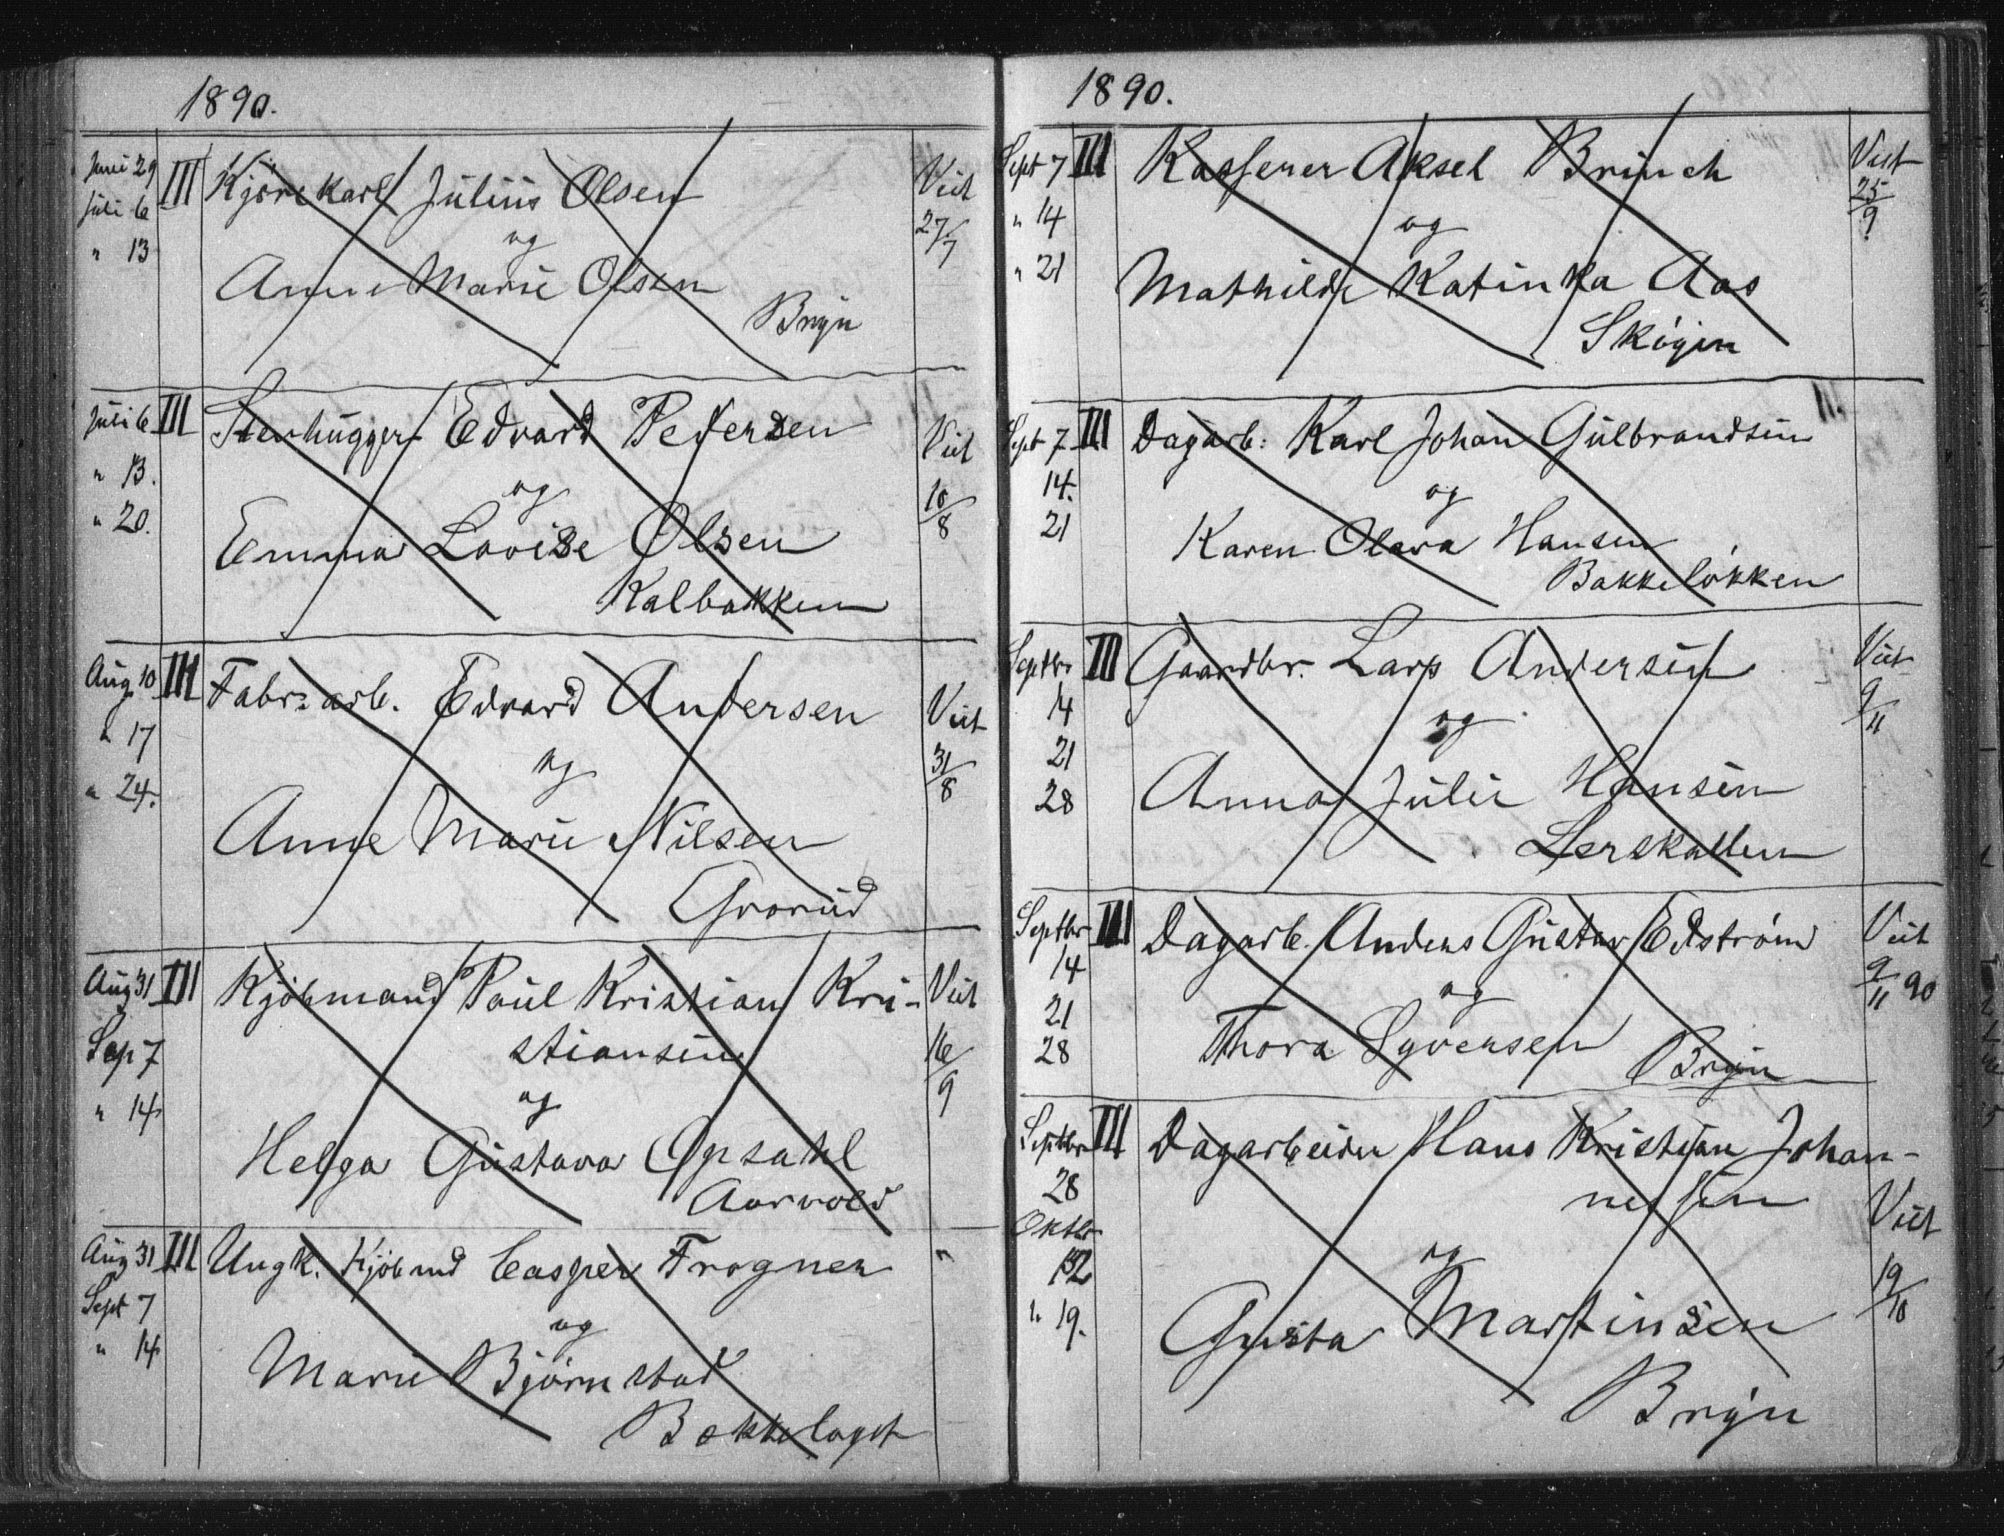 1890.
Juni 29 III Kjörekarl Julius Olsen Viet
Juli 6 27/7
" 13 og
Anne Marie Olsen
Bryn
Juli 6 III Stenhugger Edvard Pedersen Viet
" 13. og 10/8
" 20. Emma Lovise Olsen
Kalbakken
Aug 10 III Fabr: arb. Edvard Andersen Viet
" 17 og 31/8
" 24. Anne Marie Nilsen
Grorud
Aug 31 III Kjöbmand Paul Kristian Kri- Viet
Sep 7 stiansen 16/9
" 14 og
Helga Gustava Opsahl
Aarvold
Aug 31 III Ungk. Kjöbmd Casper Frogner "
Sept 7 og
" 14 Marie Bjørnstad
Bekkelaget
1890.
Sept 7 III Kasserer Aksel Brinch Viet
" 14 og 25/9
" 21 Mathilde Katinka Aas
Skøyen
Sept 7 III Dagarb: Karl Johan Gulbrandsen
14. og
21 Karen Olava Hansen
Bakkeløkken
Septbr III Gaardbr. Lars Andersen Viet
14 og 9/11
21
28 Anna Julie Hansen
Lerskallen
Septbr III Dagarb. Anders Gustav Edstrøm Viet
14 og 9/11 90
21
28 Thora Syversen
Bryn
Septbr III Dagarbeider Hans Kristian Johan-
28 nessen Viet
Oktbr
12 og 19/10
" 19. Gusta Martinsen
Bryn